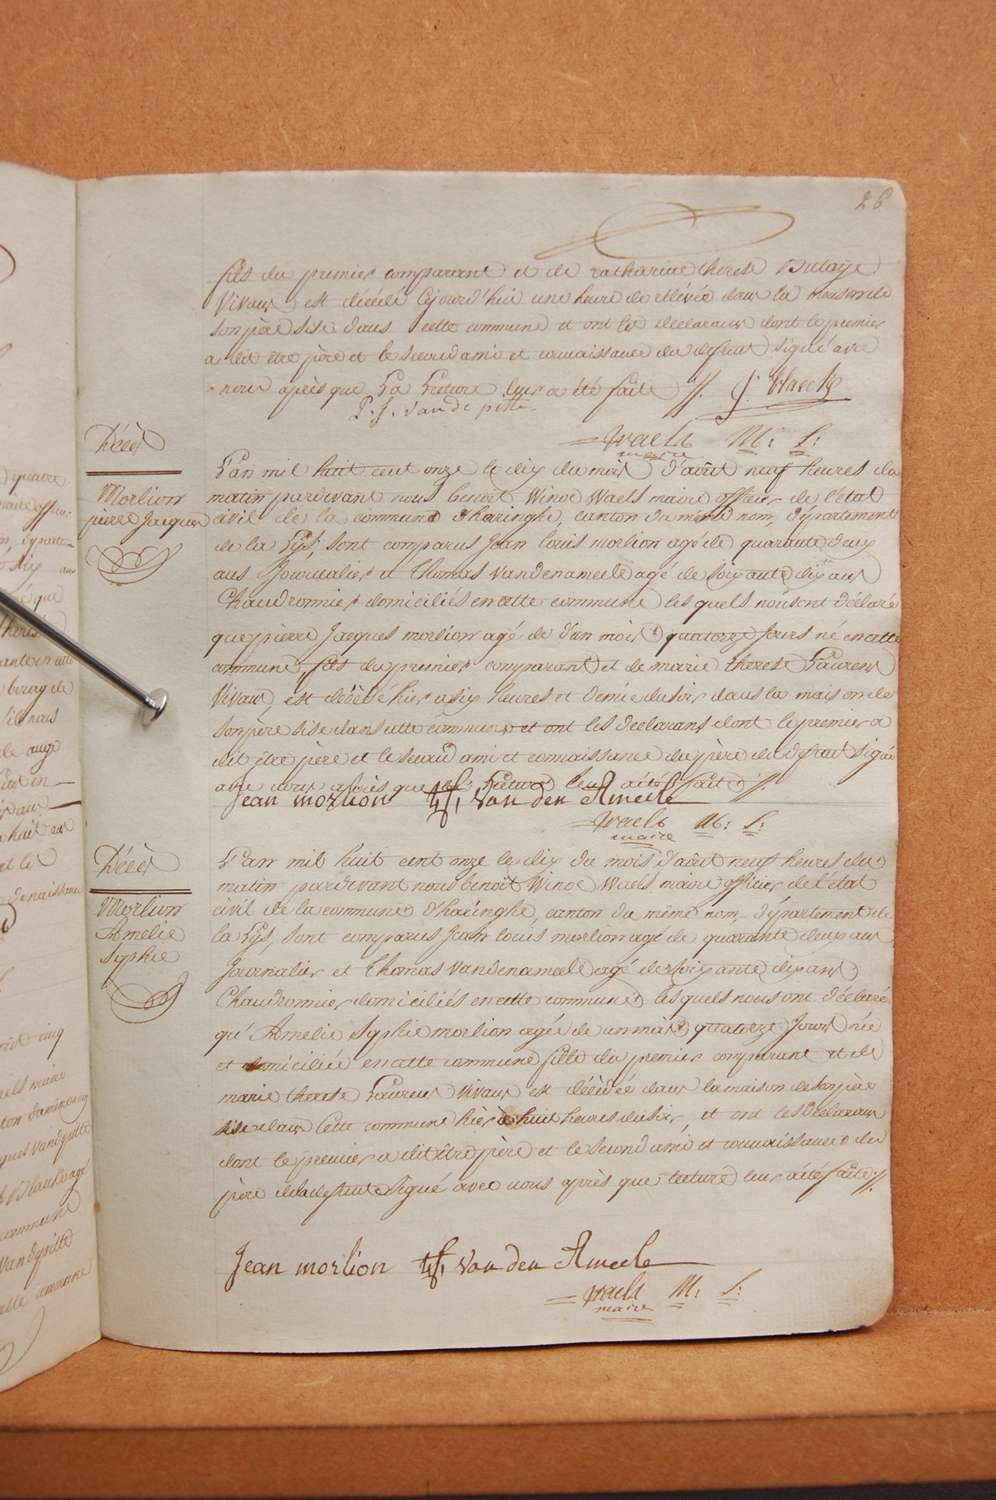 28
fils du premier comparant et de Catharine therese Butaÿe
vivans est décédé cejourd'hui une heure de relévée dans la maison de
son père sise dans cette commune et ont les declarans dont le premier
a dit être père et le second ami et connaissance du defunt signé avec
nous après que La Lecture leur a été faite //. J. Blaeck
P. J. Van de pitte
Waels M: f:
maire
Décès
Morlion
pierre Jacques
L'an mil huit cent onze le dix du mois d'aôut neuf heures du
matin pardevant nous benoit Winoc Waels maire officier de l'état
civil de la commune d'haringhe, canton du même nom, département
de la Lÿs, sont comparus Jean Louis morlion agé de quarante deux
ans Journalier et Thomas Vandenameele agé de soixante dix ans
Chaudronnier domiciliés en cette commune les quels nous ont déclaré
que pierre Jacques morlion agé de d'un mois quatorze Jours né en cette
commune, fils du premier comparant et de marie therese Laurens
vivans est décédé hier a six heures et demie du soir dans la maison de
son père sise dans cette commune et ont les declarans dont le premier a
dit être père et le second ami et connaissance du père du defunt signé
avec nous après que la Lecture leur a été fait //.
Jean morlion tf, Van den Ameele
Waels M: f:
maire
Décès
Morlion
Amélie
Sophie
L'an mil huit cent onze le dix du mois d'aôut neuf heures du
matin pardevant nous benoit Winoc Waels maire officier de l'état
civil de la commune d'haringhe, canton du même nom, département de
la Lÿs, sont comparus Jean Louis morlion agé de quarante deux ans
Journalier et Thomas Vandenameele agé de soixante dix ans
Chaudronnier domiciliés en cette commune Les quels nous ont déclaré
qu'Amelie Sophie morlion agée de un mois quatorze Jours née
et domiciliée en cette commune fille du premier comparant et de
marie therese Laurens vivans est décédée dans la maison de son père
sise dans cette commune hier à huit heures du soir, et ont les declarans
dont le premier a dit être père et le second ami et connaissance du
père de la defunte signé avec nous après que lecture leur a été faite //.
Jean morlion tf, Van den Ameele
Waels M: f:
maire